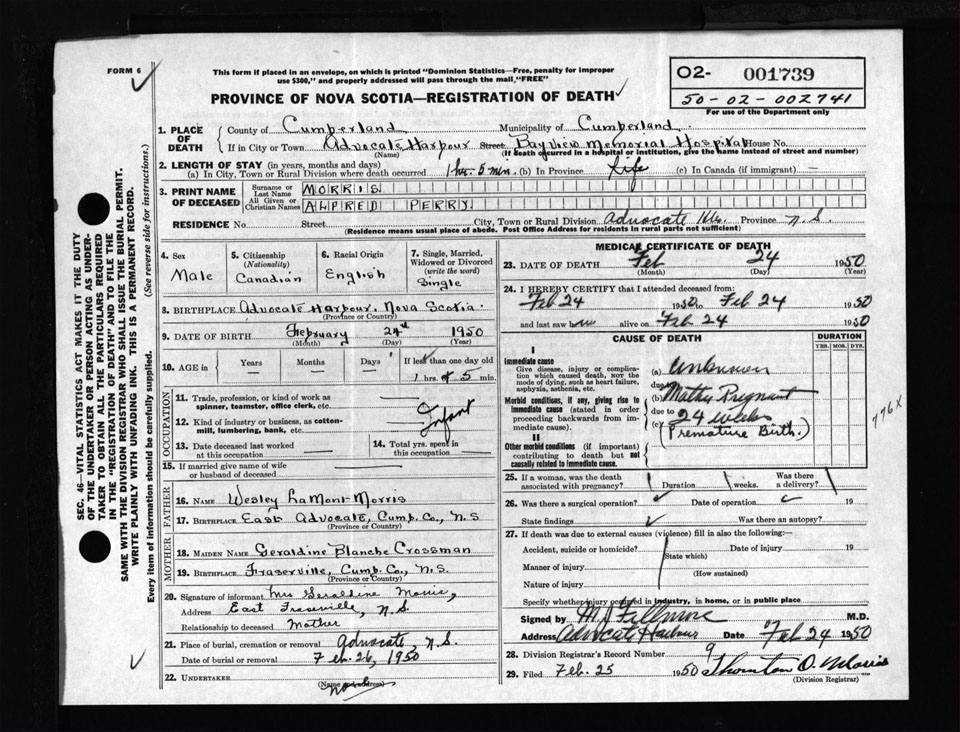 FORM 6
This form if placed in an envelope, on which is printed "Dominion Statistics—Free, penalty for improper
use $300," and properly addressed will pass through the mail "FREE"
PROVINCE OF NOVA SCOTIA—REGISTRATION OF DEATH
O2- 001739
50-02-002741
For use of the Department only
SEC. 46 VITAL STATISTICS ACT MAKES IT THE DUTY
OF THE UNDERTAKER OR PERSON ACTING AS UNDER-
TAKER TO OBTAIN ALL THE PARTICULARS REQUIRED
IN THE "REGISTRATION OF DEATH" AND TO FILE THE
SAME WITH THE DIVISION REGISTRAR WHO SHALL ISSUE THE BURIAL PERMIT.
WRITE PLAINLY WITH UNFADING INK. THIS IS A PERMANENT RECORD.
Every item of information should be carefully supplied. (See reverse side for instructions.)
1. PLACE OF DEATH
County of Cumberland Municipality of Cumberland
If in City or Town Advocate Harbour Street Bayview Memorial Hospital House No.
(Name) (If death occurred in a hospital or institution, give the name instead of street and number)
2. LENGTH OF STAY (in years, months and days)
(a) In City, Town or Rural Division where death occurred 1 hr. 5 min. (b) In Province Life (c) In Canada (if immigrant)
3. PRINT NAME OF DECEASED
Surname or Last Name MORRIS
All Given or Christian Names ALFRED PERRY
RESIDENCE No. Street City, Town or Rural Division Advocate Province N.S.
(Residence means usual place of abode. Post Office Address for residents in rural parts not sufficient)
4. Sex Male
5. Citizenship (Nationality) Canadian
6. Racial Origin English
7. Single, Married, Widowed or Divorced (write the word) Single
8. BIRTHPLACE Advocate Harbour, Nova Scotia.
(Province or Country)
9. DATE OF BIRTH February 24th 1950
(Month) (Day) (Year)
10. AGE in Years — Months — Days — If less than one day old
1 hrs. 5 min.
OCCUPATION
11. Trade, profession, or kind of work as
spinner, teamster, office clerk, etc.
12. Kind of industry or business, as cotton-
mill, lumbering, bank, etc.
Infant
13. Date deceased last worked
at this occupation
14. Total yrs. spent in
this occupation
15. If married give name of wife
or husband of deceased
FATHER
16. NAME Wesley LaMont Morris
17. BIRTHPLACE East Advocate, Cump. Co., N.S
(Province or Country)
MOTHER
18. MAIDEN NAME Geraldine Blanche Crossman
19. BIRTHPLACE Fraserville, Cump. Co., N.S.
(Province or Country)
20. Signature of informant Mrs Geraldine Morris,
Address East Fraserville, N.S.
Relationship to deceased Mother
21. Place of burial, cremation or removal Advocate, N.S.
Date of burial or removal Feb. 26, 1950
22. UNDERTAKER
(Name and address)
MEDICAL CERTIFICATE OF DEATH
23. DATE OF DEATH Feb 24 1950
(Month) (Day) (Year)
24. I HEREBY CERTIFY that I attended deceased from
Feb 24 1950 to Feb 24 1950
and last saw him alive on Feb 24 1950
CAUSE OF DEATH DURATION
YRS. MOS. DYS.
I
Immediate cause
Give disease, injury or complica-
tion which caused death, not the
mode of dying, such as heart failure,
asphyxia, asthenia, etc.
(a) Unknown
due to
Morbid conditions, if any, giving rise to
immediate cause (stated in order
proceeding backwards from im-
mediate cause).
(b) Mother Pregnant
due to 24 weeks
(c) (Premature Birth.)
776X
II
Other morbid conditions (if important)
contributing to death but not
causally related to immediate cause.
25. If a woman, was the death
associated with pregnancy? Duration weeks. Was there
a delivery?
26. Was there a surgical operation? Date of operation 19
State findings Was there an autopsy?
27. If death was due to external causes (violence) fill in also the following:
Accident, suicide or homicide? Date of injury 19
(State which)
Manner of injury
(How sustained)
Nature of injury
Specify whether injury occurred in industry, in home, or in public place
Signed by M.J. Fillmore M.D.
Address Advocate Harbour Date Feb 24 1950
28. Division Registrar's Record Number 9
29. Filed Feb. 25 1950 Thornton O. Morris
(Division Registrar)